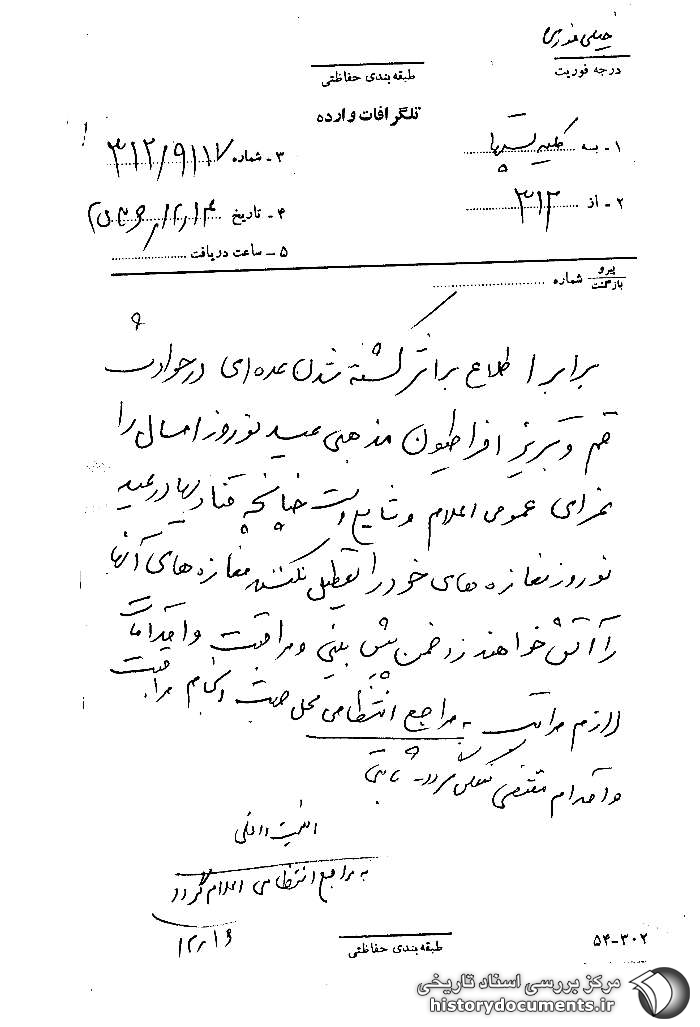 خیلی فوری
درجه فوریت
طبقه‌بندی حفاظتی
تلگرافات وارده
۱- به کلیه
۲- از ۳۱۲
۳- شماره ۳۱۲/۹۱۱۷
۴- تاریخ
۵- ساعت دریافت
پیرو
بازگشت
شماره
برابر اطلاع براثر کشته شدن عده‌ای در حوادث
قم و تبریز افراطیون مذهبی عید نوروز امسال را
عزای عمومی اعلام و شایع است چنانچه قنادیها در عید
نوروز مغازه های خود را تعطیل نکنند مغازه های آنها
را آتش خواهند زد ضمن پیش بینی و مراقبت و اقدامات
لازم مراتب به مراجع انتظامی محل جهت انجام مراقبت
و اقدام مقتضی منعکس گردد - ثابتی
امنیت داخلی
به مراجع انتظامی اعلام گردد
۱۲/۱۶
طبقه‌بندی حفاظتی
۵۴-۳۰۲
مرکز بررسی اسناد تاریخی
historydocuments.ir